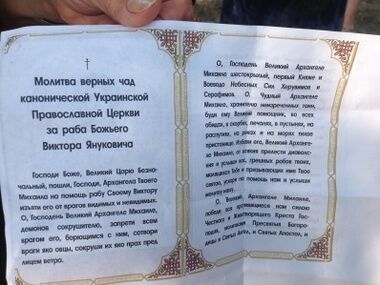 Молитва верных чад
канонической Украинской
Православной Церкви
за раба Божьего
Виктора Януковича
Господи Боже, Великий Царю Безна-
чальный, пошли, Господи, Архангела Твоего
Михаила на помощь рабу Своему Виктору
изъяти его от врагов видимых и невидимых.
О, Господень Великий Архангеле Михаиле,
демонов сокрушителю, запрети всем
врагом его, борющимся с ним, сотвори
враги яко овцы, сокруши их яко прах пред
лицем ветра.
О, Господень Великий Архангеле
Михаиле шестокрылый, первый Княже и
Воевода Небесных Сил Херувимов и
Серафимов. О, Чудный Архангеле
Михаиле, хранителю неизреченных таин,
буди ему Великий помощник, во всех
обидах, в скорбех, печалех, в пустынех, на
распутиях, на реках и на морях тихое
пристанище. Избави его, Великий Арханге-
ле Михаиле, от всякия прелести диаволь-
ския и услыши нас, грешных рабов твоих,
молящихся Тебе и призывающих имя Твое
святое, на помощь нашу ускори и услыши
молитву нашу.
О, Великий Архангеле Михаиле,
победи вся противящияся нам силою
Честного и Животворящего Креста Гос-
подня, молитвами Пресвятыя Богоро-
дицы и Святых Ангелов, и Святых Апостол, и